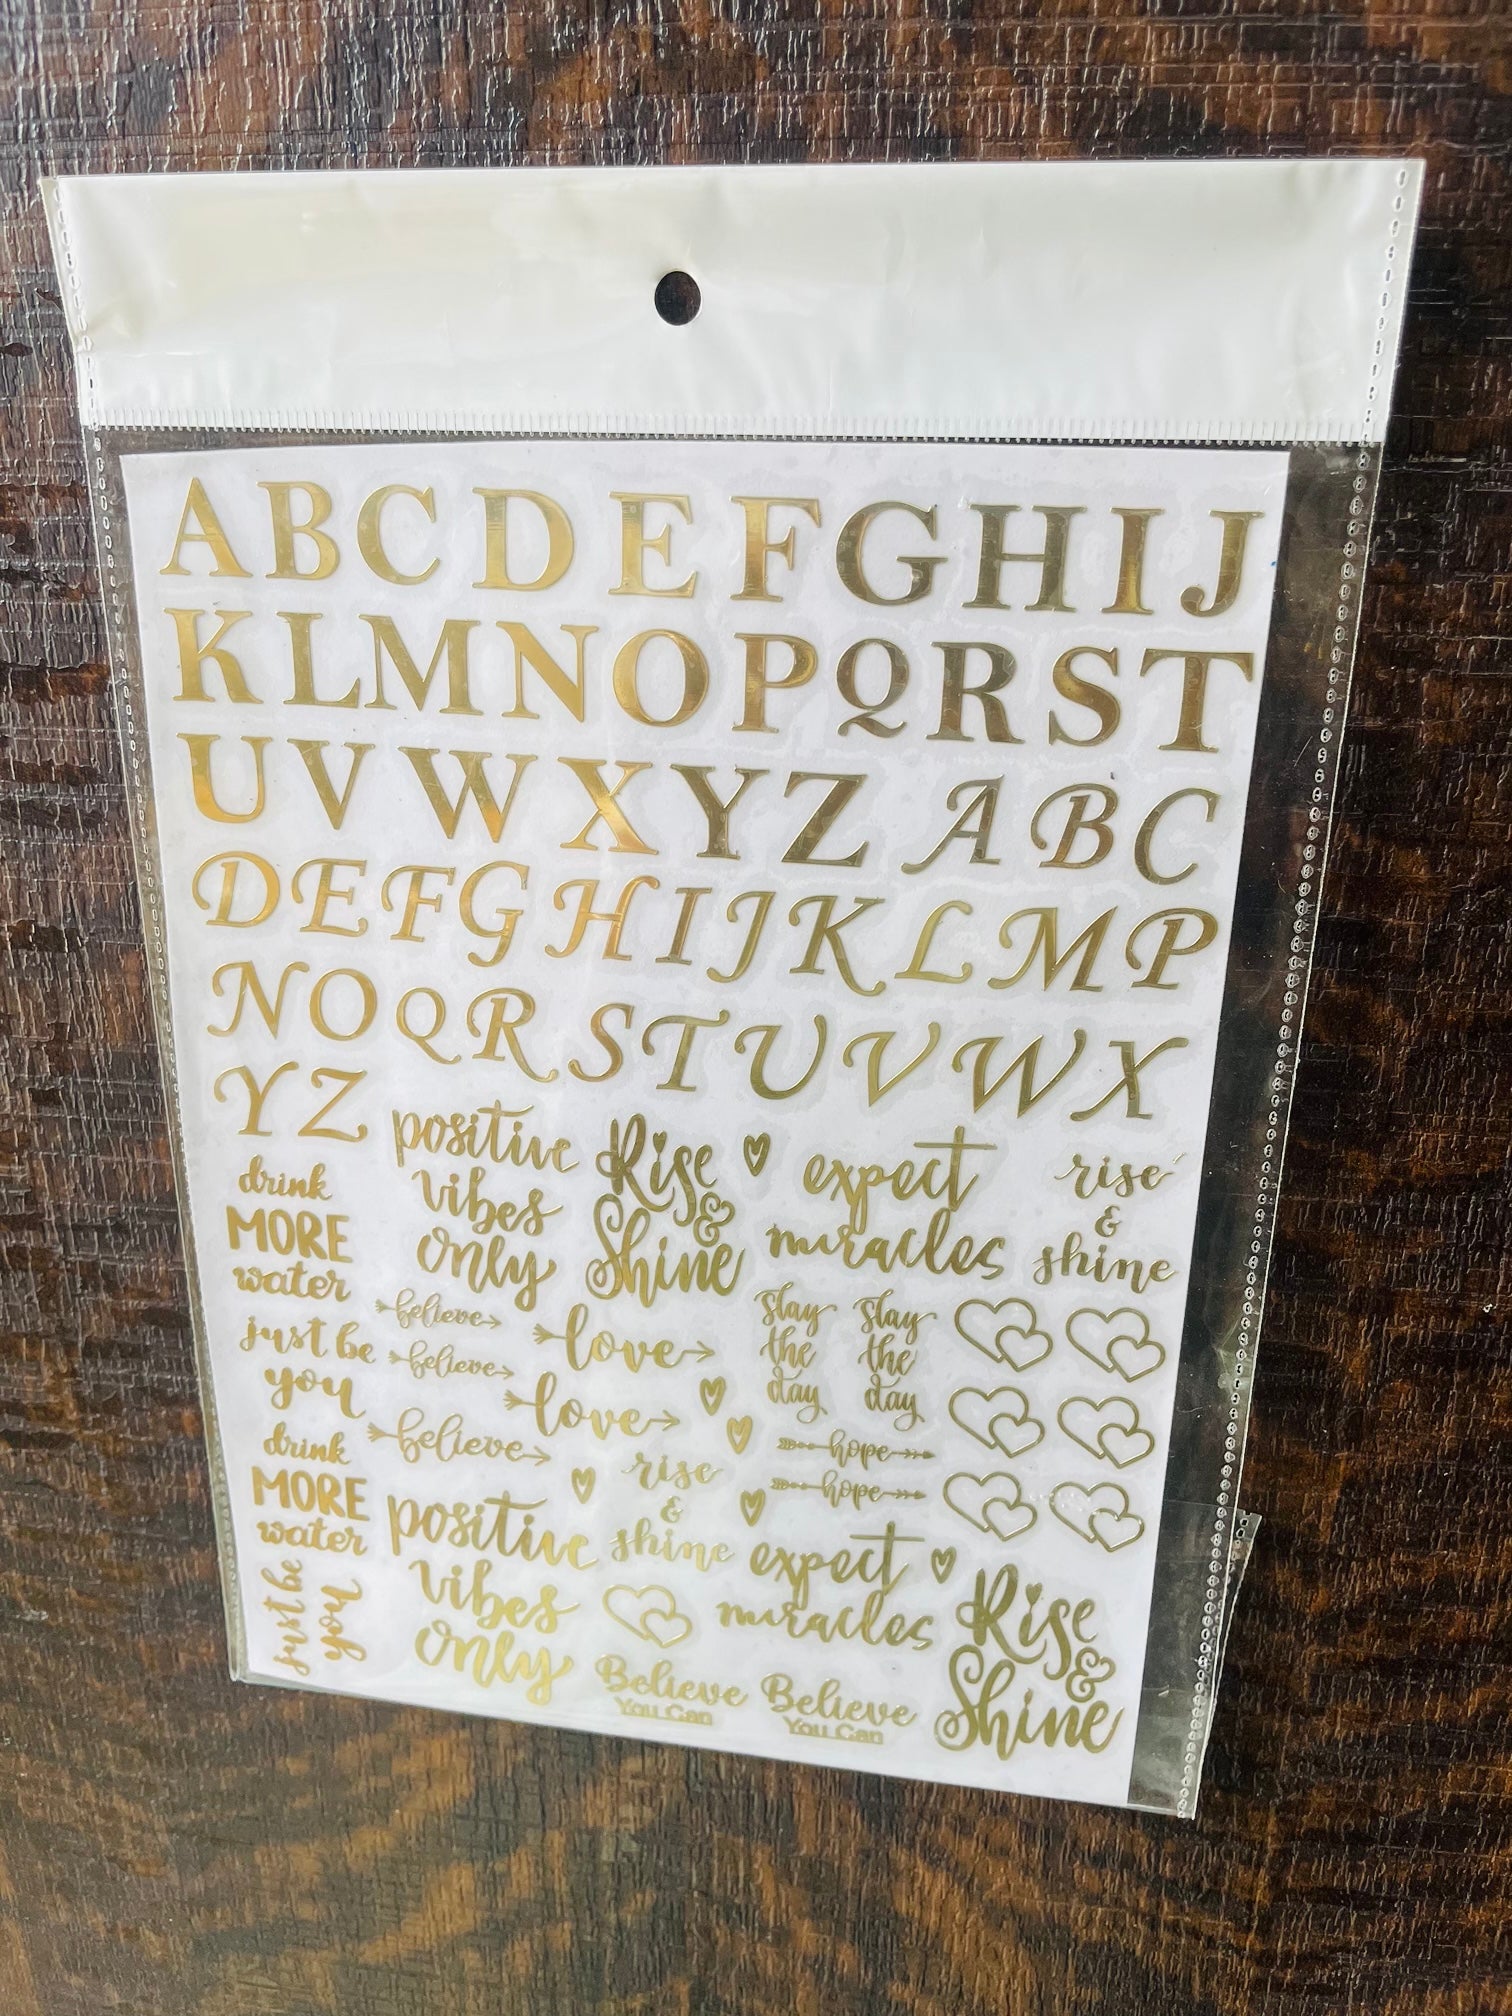 A B C D E F G H I J
K L M N O P Q R S T
U V W X Y Z A B C
D E F G H I J K L M P
N O Q R S T U V W X
Y Z
positive
vibes
only
Rise
&
Shine
expect
miracles
rise
&
shine
drink
MORE
water
believe
love
slay
the
day
slay
the
day
just be
you
believe
love
believe
hope
hope
drink
MORE
water
rise
&
shine
positive
vibes
only
expect
miracles
Rise
&
Shine
just be
you
Believe
You Can
Believe
You Can